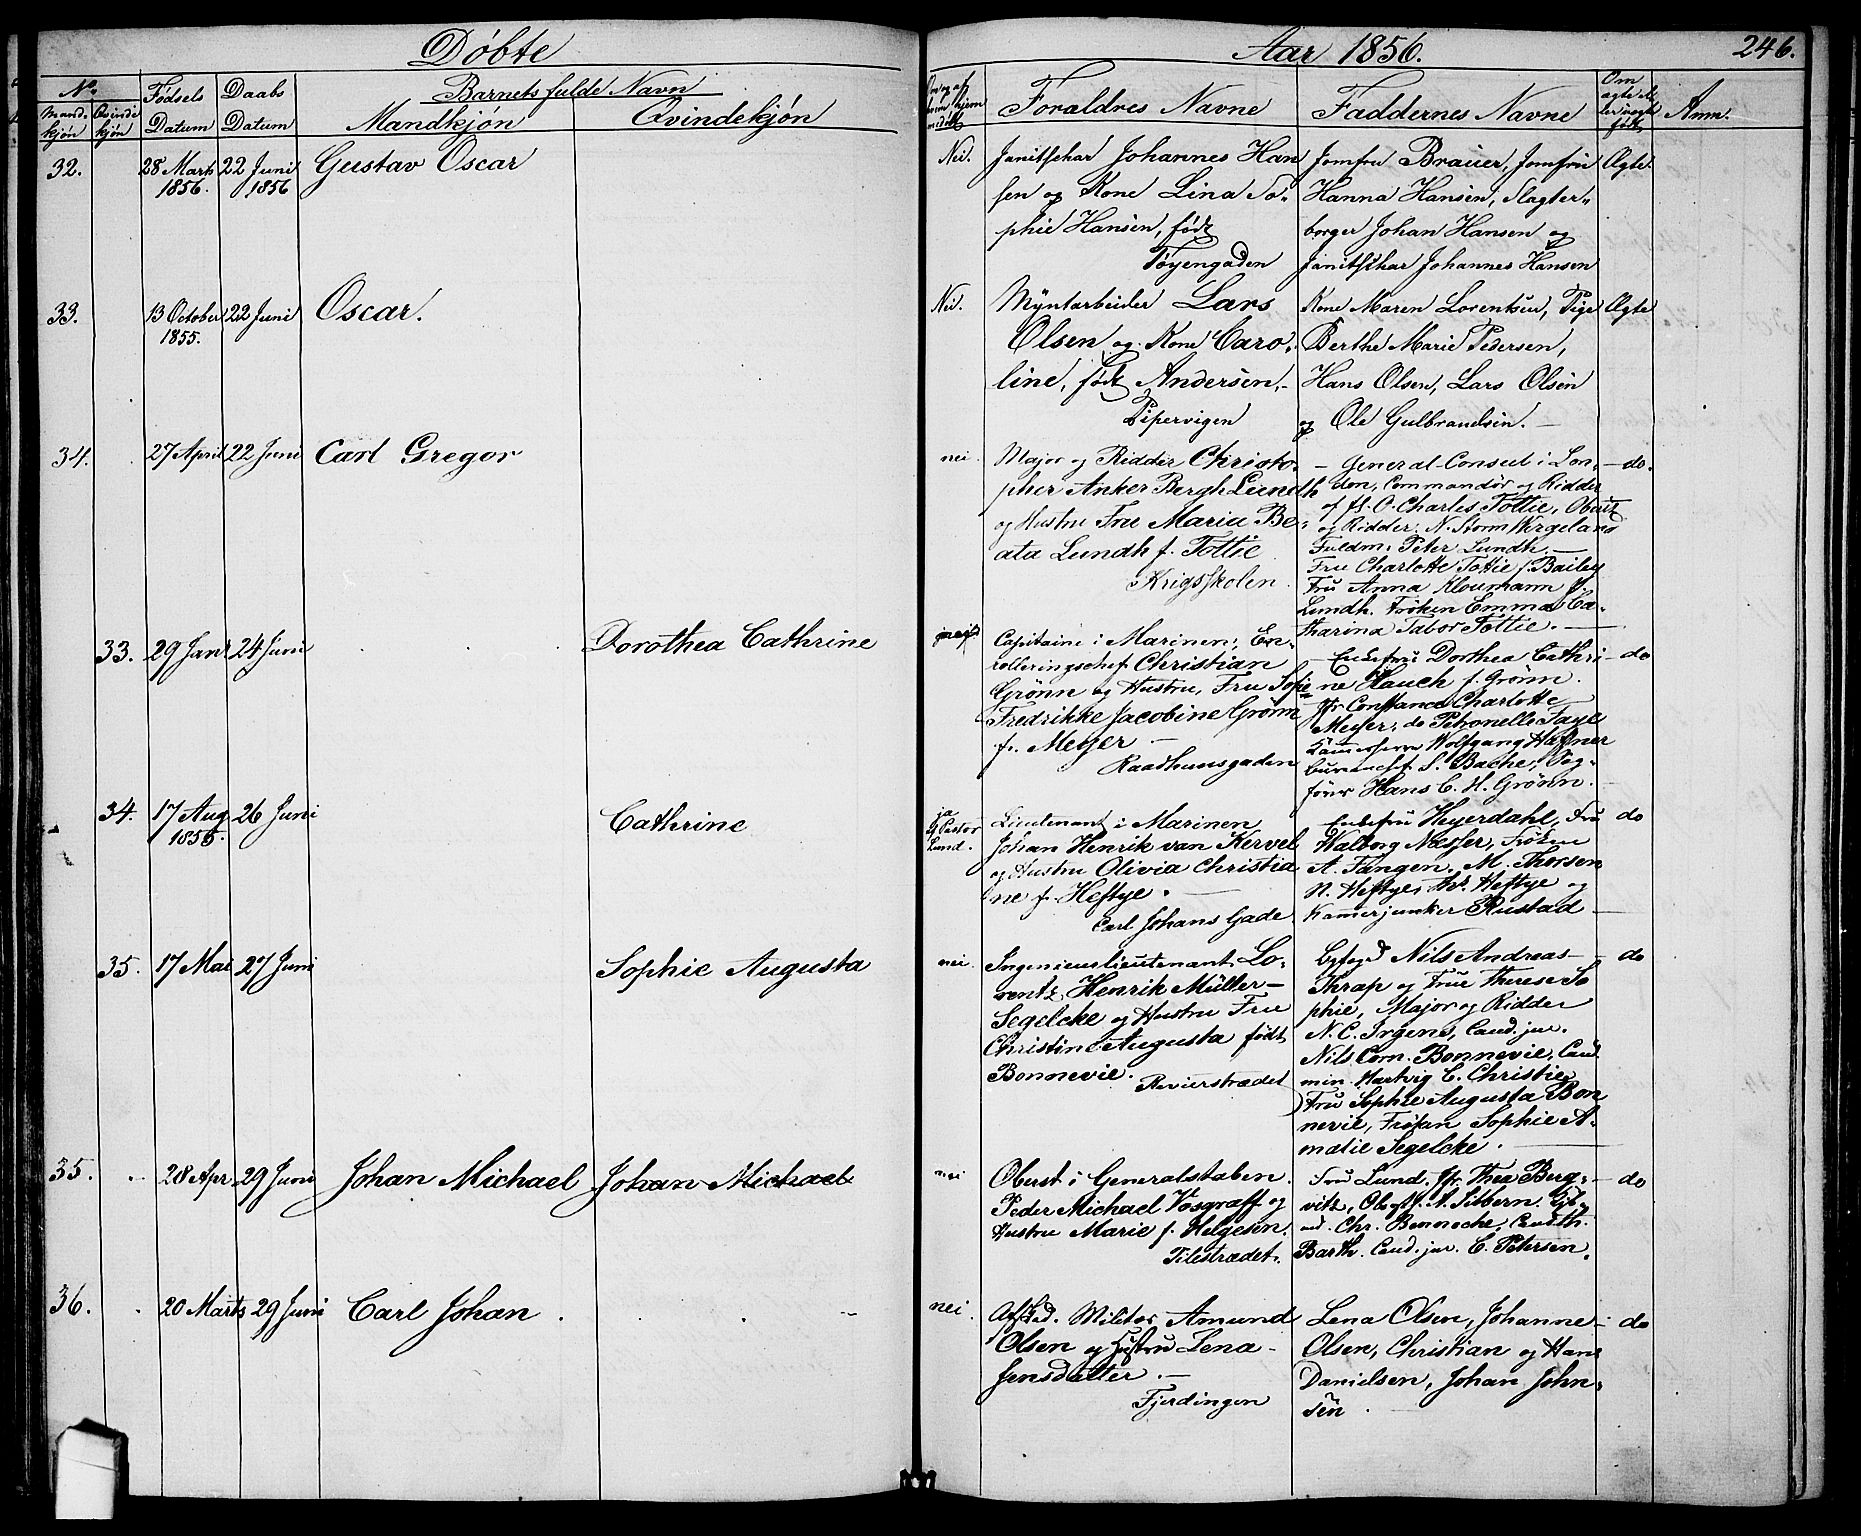 Døbte
Aar 1856.
246.
No.
Mand-
kjøn
Qvinde
kjøn
Fødsels
Datum
Daabs
Datum
Barnets fulde Navn
Mandkjøn
Qvindekjøn
Forældres Navne
Faddernes Navne
Om
født
Anm.
32.
28 Marts
1856.
22 Juni
1856
Gustav Oscar
Nei.
Janitschar Johannes Han
sen og Kone Lina So-
phie Hansen, født
Tøyengaden
Jomfru Brauer, Jomfru
Hanna Hansen, Slagter-
borger Johan Hansen og
Janitschar Johannes Hansen
Ægte.
33.
13 October
1855.
22 Juni
Oscar.
Nei.
Myntarbeider Lars
Olsen og Kone Caro-
line, født Andersen,-
Pipervigen
Kone Maren Lorentsen, Pige
Berthe Marie Pedersen,
Hans Olsen, Lars Olsen
og Ole Gulbrandsen. -
Ægte
34.
27 April
22 Juni
Carl Gregor
nei.
Major og Ridder Christo-
pher Anker Bergh Lundh
og Hustru Fru Maria Be-
ata Lundh f. Tottie
Krigsskolen.
- General-Consul i Lon-
don, Commandør og Ridder
af St. O. Charles Tottie, Oberst
og Ridder N. Storm Wergeland
Fuldm: Peter Lundh. -
Fru Charlotte Tottie f. Bailey
Fru Anna Kloumann f.
Lundh. Frøken Emma Ca-
tharina Tabor Tottie. -
- do.
33.
29 Janr
24 Juni
Dorothea Cathrine
Capitaine i Marinen, En-
rolleringschef Christian
Grønn og Hustru, Fru Sofie
Fredrikke Jacobine Grønn
f. Meyer -
Raadhuusgaden
- Enkefru Dorthea Cathri
ne Hauch f. Grønn.
Jfr Constance Charlotte
Meyer, do Petronelle Faye
Kammerherre Wolfgang Haffner
Bureauchef S. Bache, Fog-
Hans C. H. Grønn.
- do
34.
17 Aug
1855.
26 Juni
Cathrine
ja
af Pastor
Lund.
Lieutenant i Marinen
Johan Henrik van Kervel
og Hustru Olivia Christia
ne f. Heftye. -
Carl Johans Gade
Enkefru Heyerdahl, Fru
Walborg Næsser, Frøken
A. Fangen, M. Thorsen
N. Heftye, Ths. Heftye og
Kamerjunker Rustad -
do
35.
17 Mai
27 Juni
Sophie Augusta
nei.
Ingenieurlieutenant Lo-
rentz Henrik Müller-
Segelcke og Hustru Fru
Christine Augusta født
Bonnevie.
Revierstrædet
Byfogd Nils Andreas -
Thrap og Frue Therese So
phie, Major og Ridder
N. C. Irgens, Cand. jur.
Nils Corn. Bonnevie, Cand
min. Hartvig C. Christie
Fru Sophie Augusta Bon
nevie, Frøken Sophie A-
malie Segelcke. -
do
35.
28 Apr.
29 Juni
Johan Michael
Johan Michael
nei
Oberst i Generalstaben
Peder Michael Vosgraff og
Hustru Marie f. Helgesen.
Pilestrædet.
Fru Lund. Jfr. Thea Berg-
witz, A. Sibbern.
Chr. Benneche, Cand th.
Barth. Cand. jur. C. Petersen.
- do
36.
20 Marts
29 Juni
Carl Johan
nei.
Afsked. Militær Amund
Olsen og Hustru Lena -
Jensdatter. -
Fjerdingen
Lena Olsen, Johanne -
Olsen, Christian og Hans
Danielsen, Johan John-
sen.
do